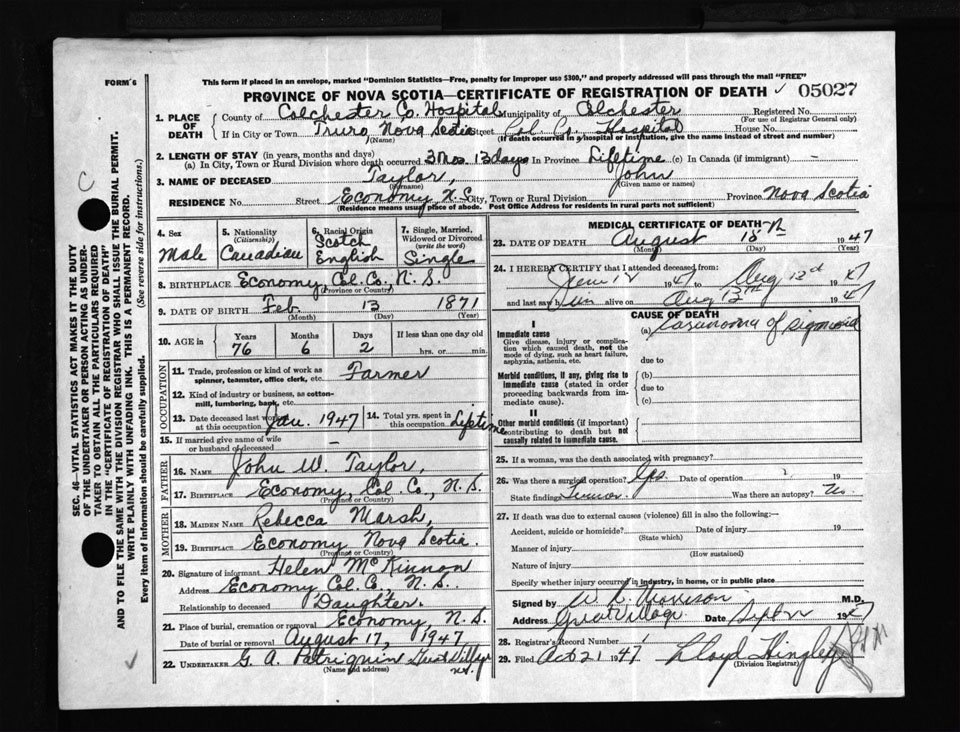 FORM 6
This form if placed in an envelope, marked "Dominion Statistics—Free, penalty for improper use $300," and properly addressed will pass through the mail "FREE"
PROVINCE OF NOVA SCOTIA—CERTIFICATE OF REGISTRATION OF DEATH 05027
1. PLACE OF DEATH
County of Colchester Co. Hospital Municipality of Colchester Registered No.
(For use of Registrar General only)
If in City or Town Truro, Nova Scotia Street Col. Co. Hospital House No.
(Name) (If death occurred in a hospital or institution, give the name instead of street and number)
2. LENGTH OF STAY (in years, months and days)
(a) In City, Town or Rural Division where death occurred 3 Mos. 13 days In Province Lifetime (c) In Canada (if immigrant) —
3. NAME OF DECEASED Taylor, John
(Surname) (Given name or names)
RESIDENCE No. Street Economy N.S. City, Town or Rural Division Province Nova Scotia
(Residence means usual place of abode. Post Office Address for residents in rural parts not sufficient)
4. Sex Male
5. Nationality (Citizenship) Canadian
6. Racial Origin Scotch English
7. Single, Married, Widowed or Divorced (write the word) Single
8. BIRTHPLACE Economy, Col. Co., N.S.
(Province or Country)
9. DATE OF BIRTH Feb. 13 1871
(Month) (Day) (Year)
10. AGE in Years 76 Months 6 Days 2 If less than one day old hrs. or min.
OCCUPATION
11. Trade, profession or kind of work as spinner, teamster, office clerk, etc. Farmer
12. Kind of industry or business, as cotton-mill, lumbering, bank, etc.
13. Date deceased last worked at this occupation Jan. 1947
14. Total yrs. spent in this occupation Lifetime
15. If married give name of wife or husband of deceased —
FATHER
16. NAME John W. Taylor,
17. BIRTHPLACE Economy, Col. Co., N.S.
(Province or Country)
MOTHER
18. MAIDEN NAME Rebecca Marsh,
19. BIRTHPLACE Economy Nova Scotia.
(Province or Country)
20. Signature of informant Helen McKinnon
Address Economy Col. Co., N.S.
Relationship to deceased Daughter.
21. Place of burial, cremation or removal Economy, N.S.
Date of burial or removal August 17, 1947
22. UNDERTAKER G. A. Patriquin Great Village N.S.
(Name and address)
MEDICAL CERTIFICATE OF DEATH
23. DATE OF DEATH August 15th 1947
(Month) (Day) (Year)
24. I HEREBY CERTIFY that I attended deceased from:
1947 to Aug 1947
and last saw him alive on Aug 1947
CAUSE OF DEATH
I
Immediate cause
Give disease, injury or complication which caused death, not the mode of dying, such as heart failure, asphyxia, asthenia, etc.
(a) Carcinoma of sigmoid
due to
Morbid conditions, if any, giving rise to immediate cause (stated in order proceeding backwards from immediate cause).
(b)
due to
(c)
II
Other morbid conditions (if important) contributing to death but not causally related to immediate cause.
25. If a woman, was the death associated with pregnancy?
26. Was there a surgical operation? Yes. Date of operation ? 19
State findings Tumor. Was there an autopsy? No
27. If death was due to external causes (violence) fill in also the following:—
Accident, suicide or homicide? Date of injury 19
(State which)
Manner of injury
(How sustained)
Nature of injury
Specify whether injury occurred in industry, in home, or in public place
Signed by Morrison M.D.
Address Great Village Date Sept 1947
28. Registrar's Record Number
29. Filed Oct 21 1947 Lloyd Hingley
(Division Registrar)
SEC. 46—VITAL STATISTICS ACT MAKES IT THE DUTY OF THE UNDERTAKER OR PERSON ACTING AS UNDERTAKER TO OBTAIN ALL THE PARTICULARS REQUIRED IN THE "CERTIFICATE OF REGISTRATION OF DEATH" AND TO FILE THE SAME WITH THE DIVISION REGISTRAR WHO SHALL ISSUE THE BURIAL PERMIT.
WRITE PLAINLY WITH UNFADING INK. THIS IS A PERMANENT RECORD.
Every item of information should be carefully supplied. (See reverse side for instructions.)